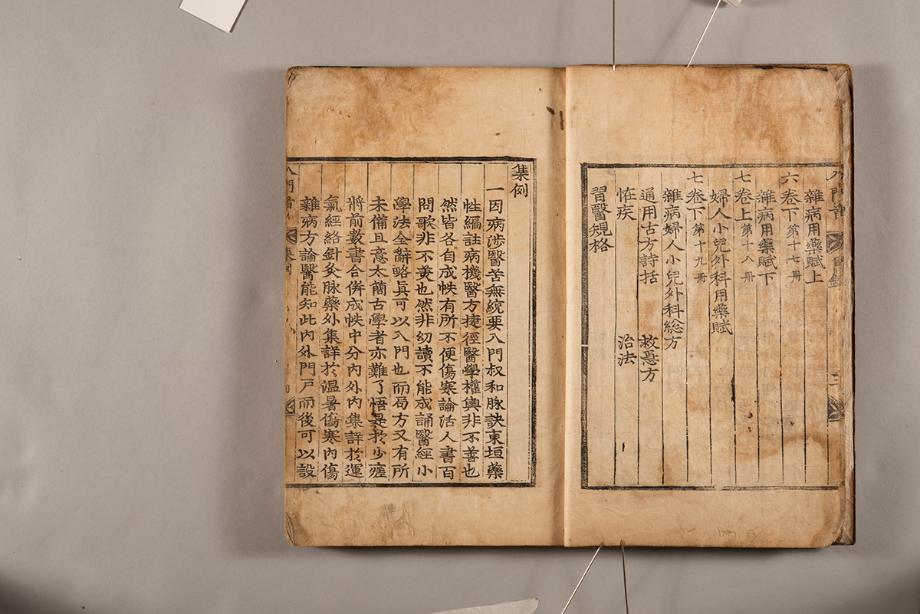 雜病用藥賦上
六卷下 第十七冊
雜病用藥賦下
七卷上 第十八冊
婦人小兒外科用藥賦
七卷下 第十九冊
雜病婦人小兒外科総方
通用古方詩括 救急方
恠疾 治法
習醫規格
集例
一因病涉醫苦無統要入門叔和脉訣東垣藥
性編註病機醫方捷徑醫學權輿非不善也
然皆各自成帙有所不便傷寒論活人書百
問歌非不羙也然非幼讀不能成誦醫經小
學法全辭略眞可以入門也而局方又有所
未備且意太簡古學者亦難了悟是扵少瘥
將前數書合併成帙中分內外內集詳扵運
氣經絡針灸脉藥外集詳扵溫暑傷寒內傷
雜病方論醫能知此內外門戸而後可以設